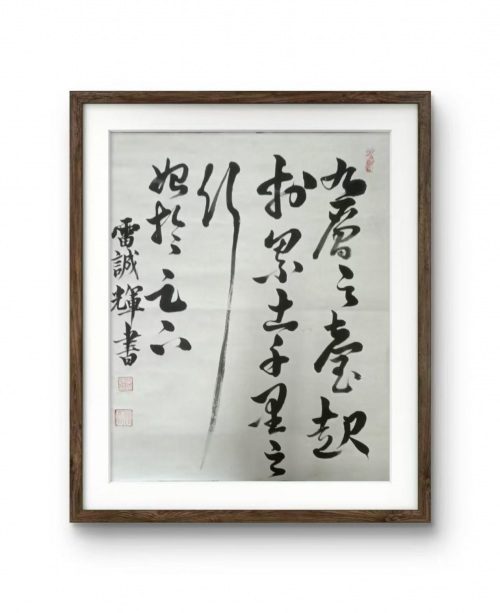 九層之臺起
於累土千里之
行
始於足下
雷誠輝書